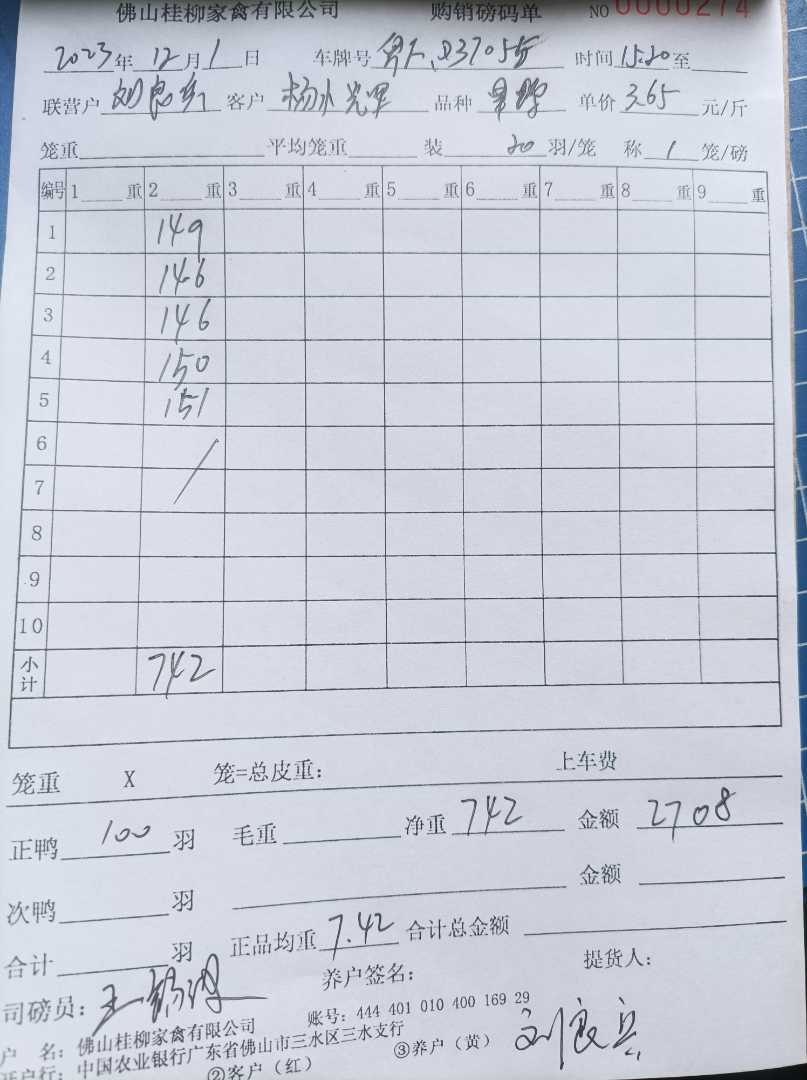 佛山桂柳家禽有限公司 购销磅码单 NO 0000274
2023年 12月 1日 车牌号 03705 时间 15:20 至
联营户 刘良兵 客户 杨 光 品种 单价 3.65 元/斤
笼重 平均笼重 装 20 羽/笼 称 1 笼/磅
编号 1 重 2 重 3 重 4 重 5 重 6 重 7 重 8 重 9 重
1 149
2 146
3 146
4 150
5 151
6
7
8
9
10
小计 742
笼重 X 笼=总皮重： 上车费
正鸭 100 羽 毛重 净重 742 金额 2708
次鸭 羽 金额
合计 羽 正品均重 7.42 合计总金额
司磅员： 王 养户签名： 提货人：
户 名：佛山桂柳家禽有限公司 账号：444 401 010 400 169 29
开户行：中国农业银行广东省佛山市三水区三水支行 刘良兵
②客户（红） ③养户（黄）